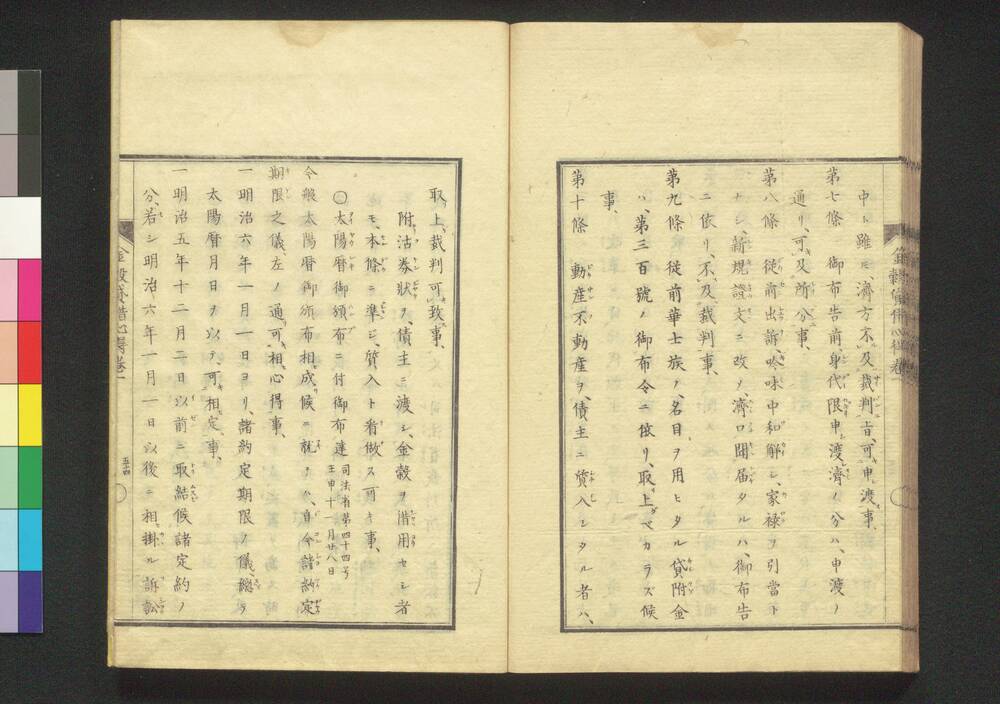 中ト雖モ、濟方不及裁判旨、可申渡事、
第七條 御布告前身代限申渡濟ノ分ハ、申渡ノ
通リ、可及所分事、
第八條 従前出訴、吟味中和解シ、家禄ヲ引當ト
ナシ、新規證文ニ改メ、濟口聞届タルハ、御布告
ニ依リ、不及裁判事、
第九條 従前華士族ノ名目ヲ用ヒタル貸附金
ハ、第三百號ノ御布令ニ依リ、取上ベカラズ候
事、
第十條 動産不動産ヲ、債主ニ質入シタル者ハ、
取上、裁判可致事、
附沽券狀ヲ、債主ニ渡シ、金穀ヲ借用セシ者
モ、本條ニ準ジ、質入ト看做ス可キ事、
〇太陽曆御頒布ニ付御布達 司法省第四十四号 壬申十一月廿八日
今般太陽曆御頒布相成候ニ就テハ、自今諸約定
期限之儀、左ノ通可相心得事、
一明治六年一月一日ヨリ、諸約定期限ノ儀、總テ
太陽曆月日ヲ以テ、可相定事、
一明治五年十二月二日以前ニ取結候諸定約ノ
分、若シ明治六年一月一日以後ニ相掛ル訴訟
金穀貸借心得卷一